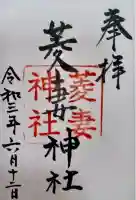 奉拝
菱妻神社
菱妻
神社
令和三年六月十三日